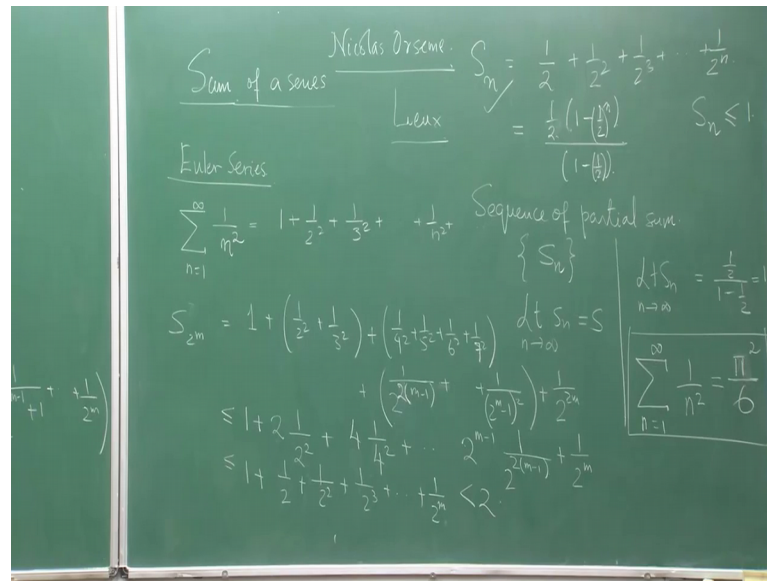 Nicolas Orseme.
Sum of a series
S_n = 1/2 + 1/2^2 + 1/2^3 + ... + 1/2^n
Lieux
= 1/2 (1-(1/2)^n) / (1-(1/2))
S_n ≤ 1
Euler Series
∑_{n=1}^{∞} 1/n^2 = 1 + 1/2^2 + 1/3^2 + + 1/n^2 +
Sequence of partial sum.
{S_n}
Lt_{n→∞} S_n = S
Lt_{n→∞} S_n = (1/2)/(1-1/2) = 1
∑_{n=1}^{∞} 1/n^2 = π^2/6
S_{2^m} = 1 + (1/2^2 + 1/3^2) + (1/4^2 + 1/5^2 + 1/6^2 + 1/7^2)
+ (1/2^{2(m-1)} + + 1/(2^m-1)^2) + 1/2^{2m}
≤ 1 + 2 1/2^2 + 4 1/4^2 + ... 2^{m-1} 1/2^{2(m-1)} + 1/2^m
≤ 1 + 1/2 + 1/2^2 + 1/2^3 + ... + 1/2^m < 2
+1 + + 1/2^m)